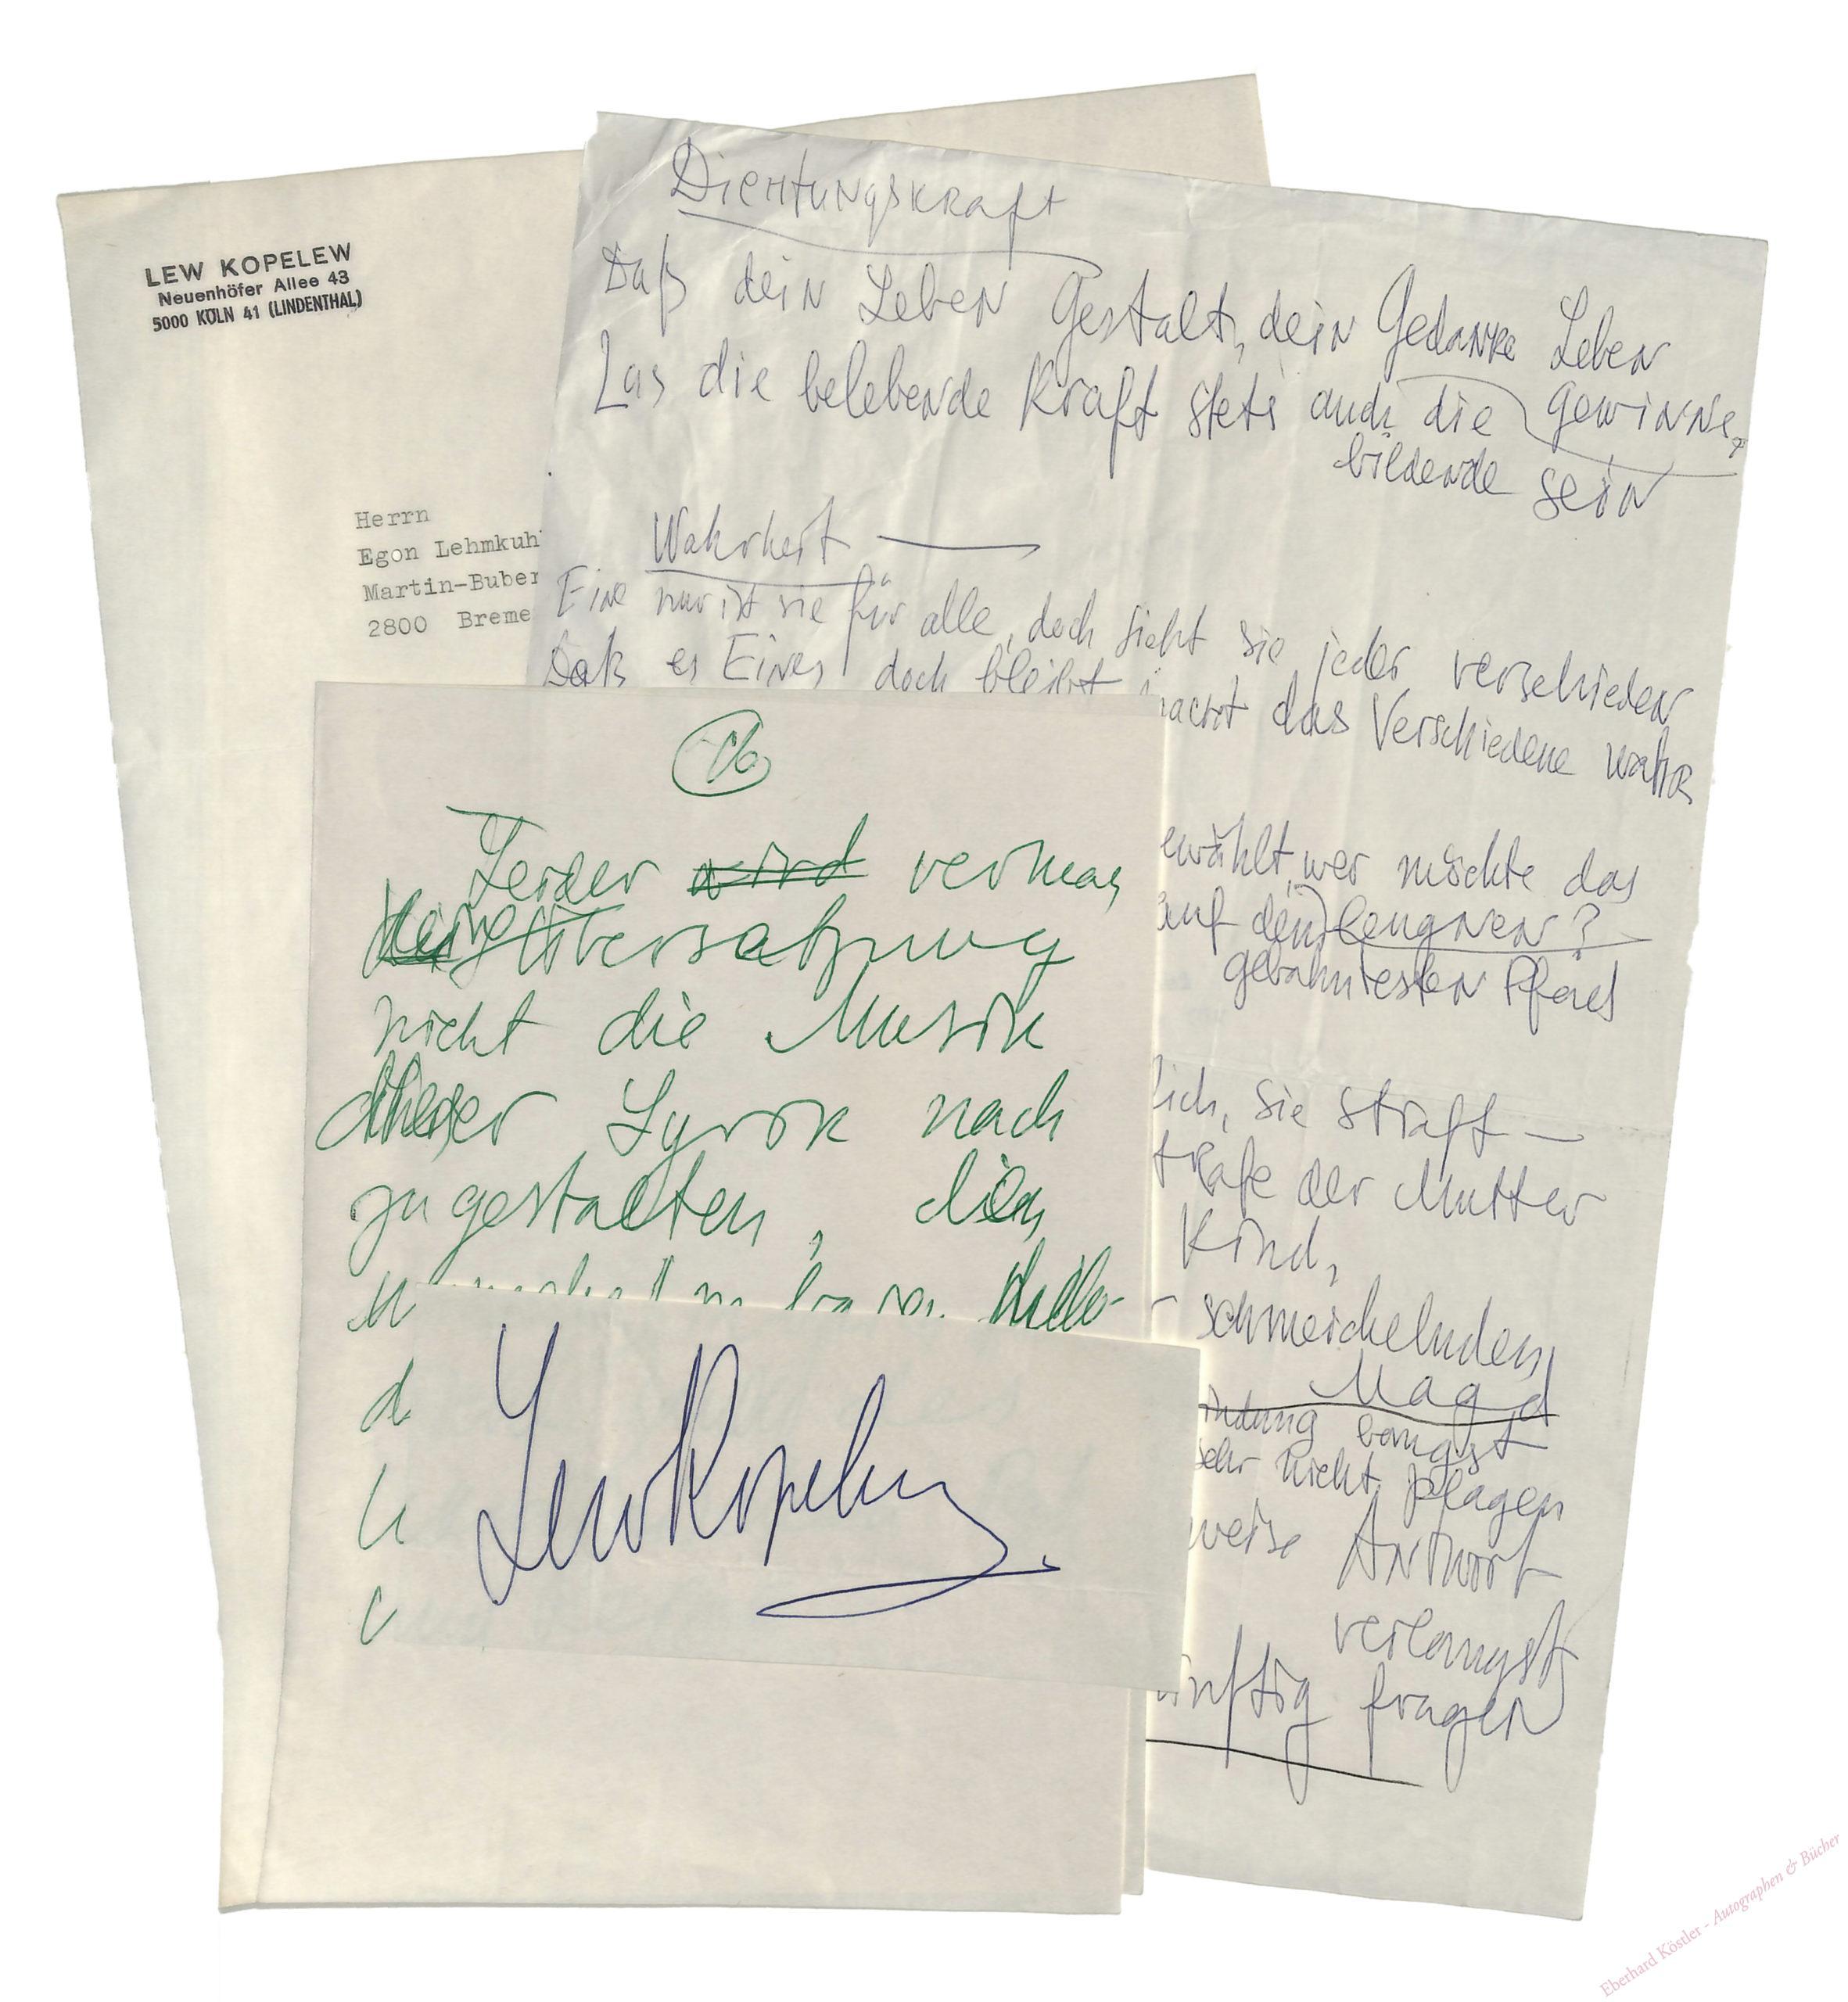 LEW KOPELEW
Neuenhöfer Allee 43
5000 KÖLN 41 (LINDENTHAL)
Herrn
Egon Lehmkuh
Martin-Buber
2800 Breme
Dichtungskraft
Daß dein Leben Gestalt, dein Gedanke Leben
gewinne,
Las die belebende Kraft stets auch die
bildende sein
Wahrheit —
Eine nur ist sie für alle, doch sieht sie jeder verschieden
Daß es Eines doch bleibt macht das Verschiedene wahr
ewählt, wer möchte das
leugnen?
auf den
gebahntesten Pfad
lich, sie straft —
der Mutter
Kind,
schmeichelnden
Magd
bangst
sehr nicht plagen
weise Antwort
verlangst
ünftig fragen
16
Leider wird vermag
keine Übersetzung
nicht die Musik
dieser Lyrik nach
zugestalten, den
d
Lew Kopelew
Eberhard Köstler - Autographen & Bücher